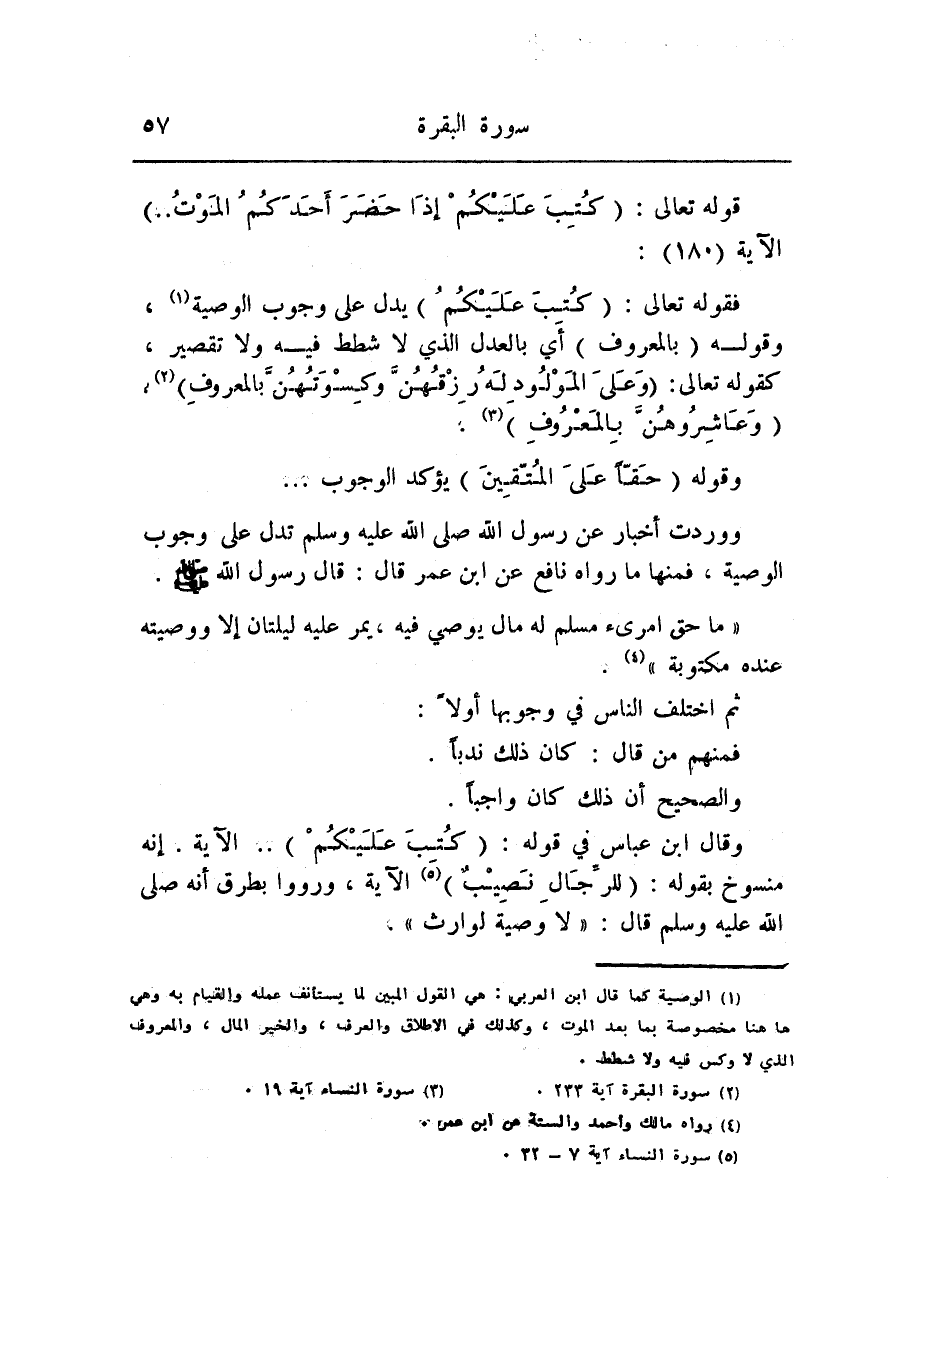 سورة البقرة ٥٧
قوله تعالى : ( كُتِبَ عَلَيْكُمْ إذَا حَضَرَ أَحَدَكُمُ المَوْتُ..)
الآية (١٨٠) :
فقوله تعالى : ( كُتِبَ عَلَيْكُمُ ) يدل على وجوب الوصية(١) ،
وقولـــه ( بالمعروف ) أَي بالعدل الذي لا شطط فيـــه ولا تقصير ،
كقوله تعالى: (وَعَلىَ المَوْلُودِ لَهُ رِزْقُهُنَّ وكِسْوَتُهُنَّ بالمعروفِ)(٢)،
( وَعَاشِرُوهُنَّ بِالمَعْرُوفِ )(٣) .
وقوله ( حَقّاً عَلىَ المُتّقِينَ ) يؤكد الوجوب ...
ووردت أخبار عن رسول الله صلى الله عليه وسلم تدل على وجوب
الوصية ، فمنها ما رواه نافع عن ابن عمر قال : قال رسول الله ﷺ .
« ما حق امرىء مسلم له مال يوصي فيه ، يمر عليه ليلتان إلا ووصيته
عنده مكتوبة »(٤) .
ثم اختلف الناس في وجوبها أولاً :
فمنهم من قال : كان ذلك ندباً .
والصحيح أن ذلك كان واجباً .
وقال ابن عباس في قوله : ( كُتِبَ عَلَيْكُمْ ) .. الآية . إنه
منسوخ بقوله : ( للرِّجَالِ نَصِيْبٌ )(٥) الآية ، ورووا بطرق أنه صلى
الله عليه وسلم قال : « لا وصية لوارث » .
(١) الوصية كما قال ابن العربي : هي القول المبين لما يستأنف عمله والقيام به وهي
ها هنا مخصوصة بما بعد الموت ، وكذلك في الاطلاق والعرف ، والخير المال ، والمعروف
الذي لا وكس فيه ولا شطط .
(٢) سورة البقرة آية ٢٣٣ . (٣) سورة النساء آية ١٩ .
(٤) رواه مالك وأحمد والستة عن ابن عمر .
(٥) سورة النساء آية ٧ – ٣٢ .